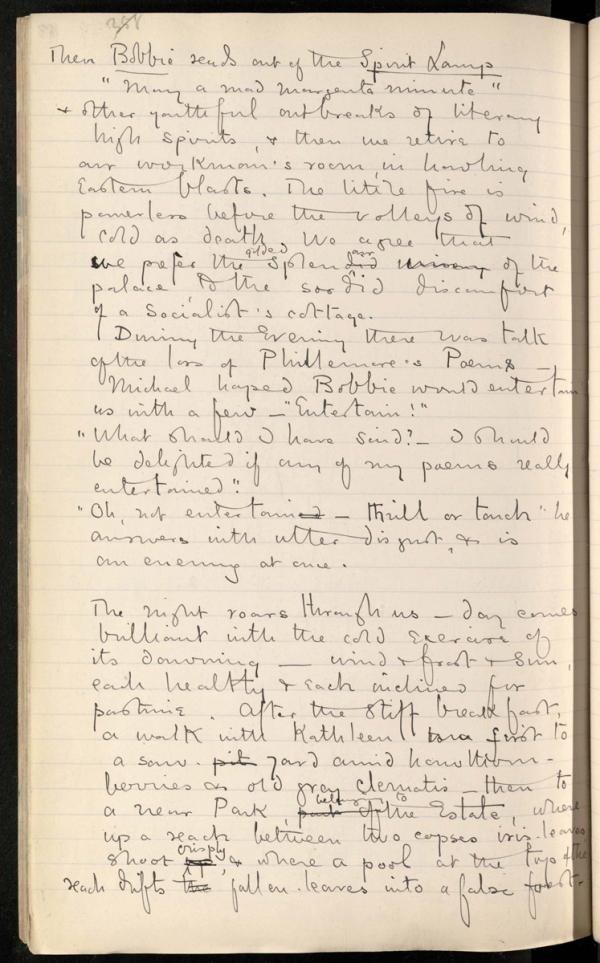 Then Bobbie reads out of the Spirit Lamp
"Many a mad magenta minute"
& other youthful outbreaks of literary
high spirits, & then we retire to
our workman's room, in howling
Eastern blasts. The little fire is
powerless before the volleys of wind,
cold as death. We agree that
we prefer the gilded splendid of the
palace to the sordid discomfort
of a Socialist's cottage.
During the Evening there was talk
of the loss of Phillemore's Poems —
Michael hoped Bobbie would entertain
us with a few — "Entertain!"
"What should I have said? — I should
be delighted if any of my poems really
entertained".
"Oh, not entertained — thrill or touch" he
answers with utter disgust, & is
an enemy at once.
The night roars through us — day comes
brilliant with the cold exercise of
its dawning — wind & frost & sun,
each healthy & each inclined for
pastime. After the stiff breakfast,
a walk with Kathleen first to
a saw-pit yard amid hawthorn-
berries as old gray clematis — then to
a near Park, park belonging to of the Estate, where
up a reach between two copses iris-leaves
shoot up crisply, & where a pool at the top of the
reach drifts the fallen leaves into a false